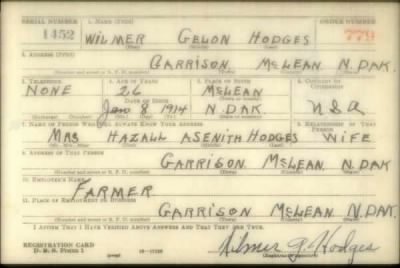 SERIAL NUMBER 1. NAME (Print) ORDER NUMBER
1452 WILMER GELON HODGES 779
(First) (Middle) (Last)
2. ADDRESS (Print)
GARRISON McLEAN N.DAK.
(Number and street or R. F. D. number) (Town) (County) (State)
3. TELEPHONE 4. AGE IN YEARS 5. PLACE OF BIRTH 6. COUNTRY OF CITIZENSHIP
NONE 26 McLEAN
DATE OF BIRTH
Jan 8 1914 N.DAK
7. NAME OF PERSON WHO WILL ALWAYS KNOW YOUR ADDRESS 8. RELATIONSHIP OF THAT PERSON
MRS HAZALL ASENITH HODGES WIFE
(Mr., Mrs., Miss) (First) (Middle) (Last)
9. ADDRESS OF THAT PERSON
GARRISON McLEAN N.DAK
(Number and street or R. F. D. number) (Town) (County) (State)
10. EMPLOYER'S NAME
FARMER
11. PLACE OF EMPLOYMENT OR BUSINESS
GARRISON McLEAN N.DAK.
(Number and street or R. F. D. number) (Town) (County) (State)
I AFFIRM THAT I HAVE VERIFIED ABOVE ANSWERS AND THAT THEY ARE TRUE.
REGISTRATION CARD
D. S. S. FORM 1 (over) Wilmer G. Hodges
(Registrant's signature)